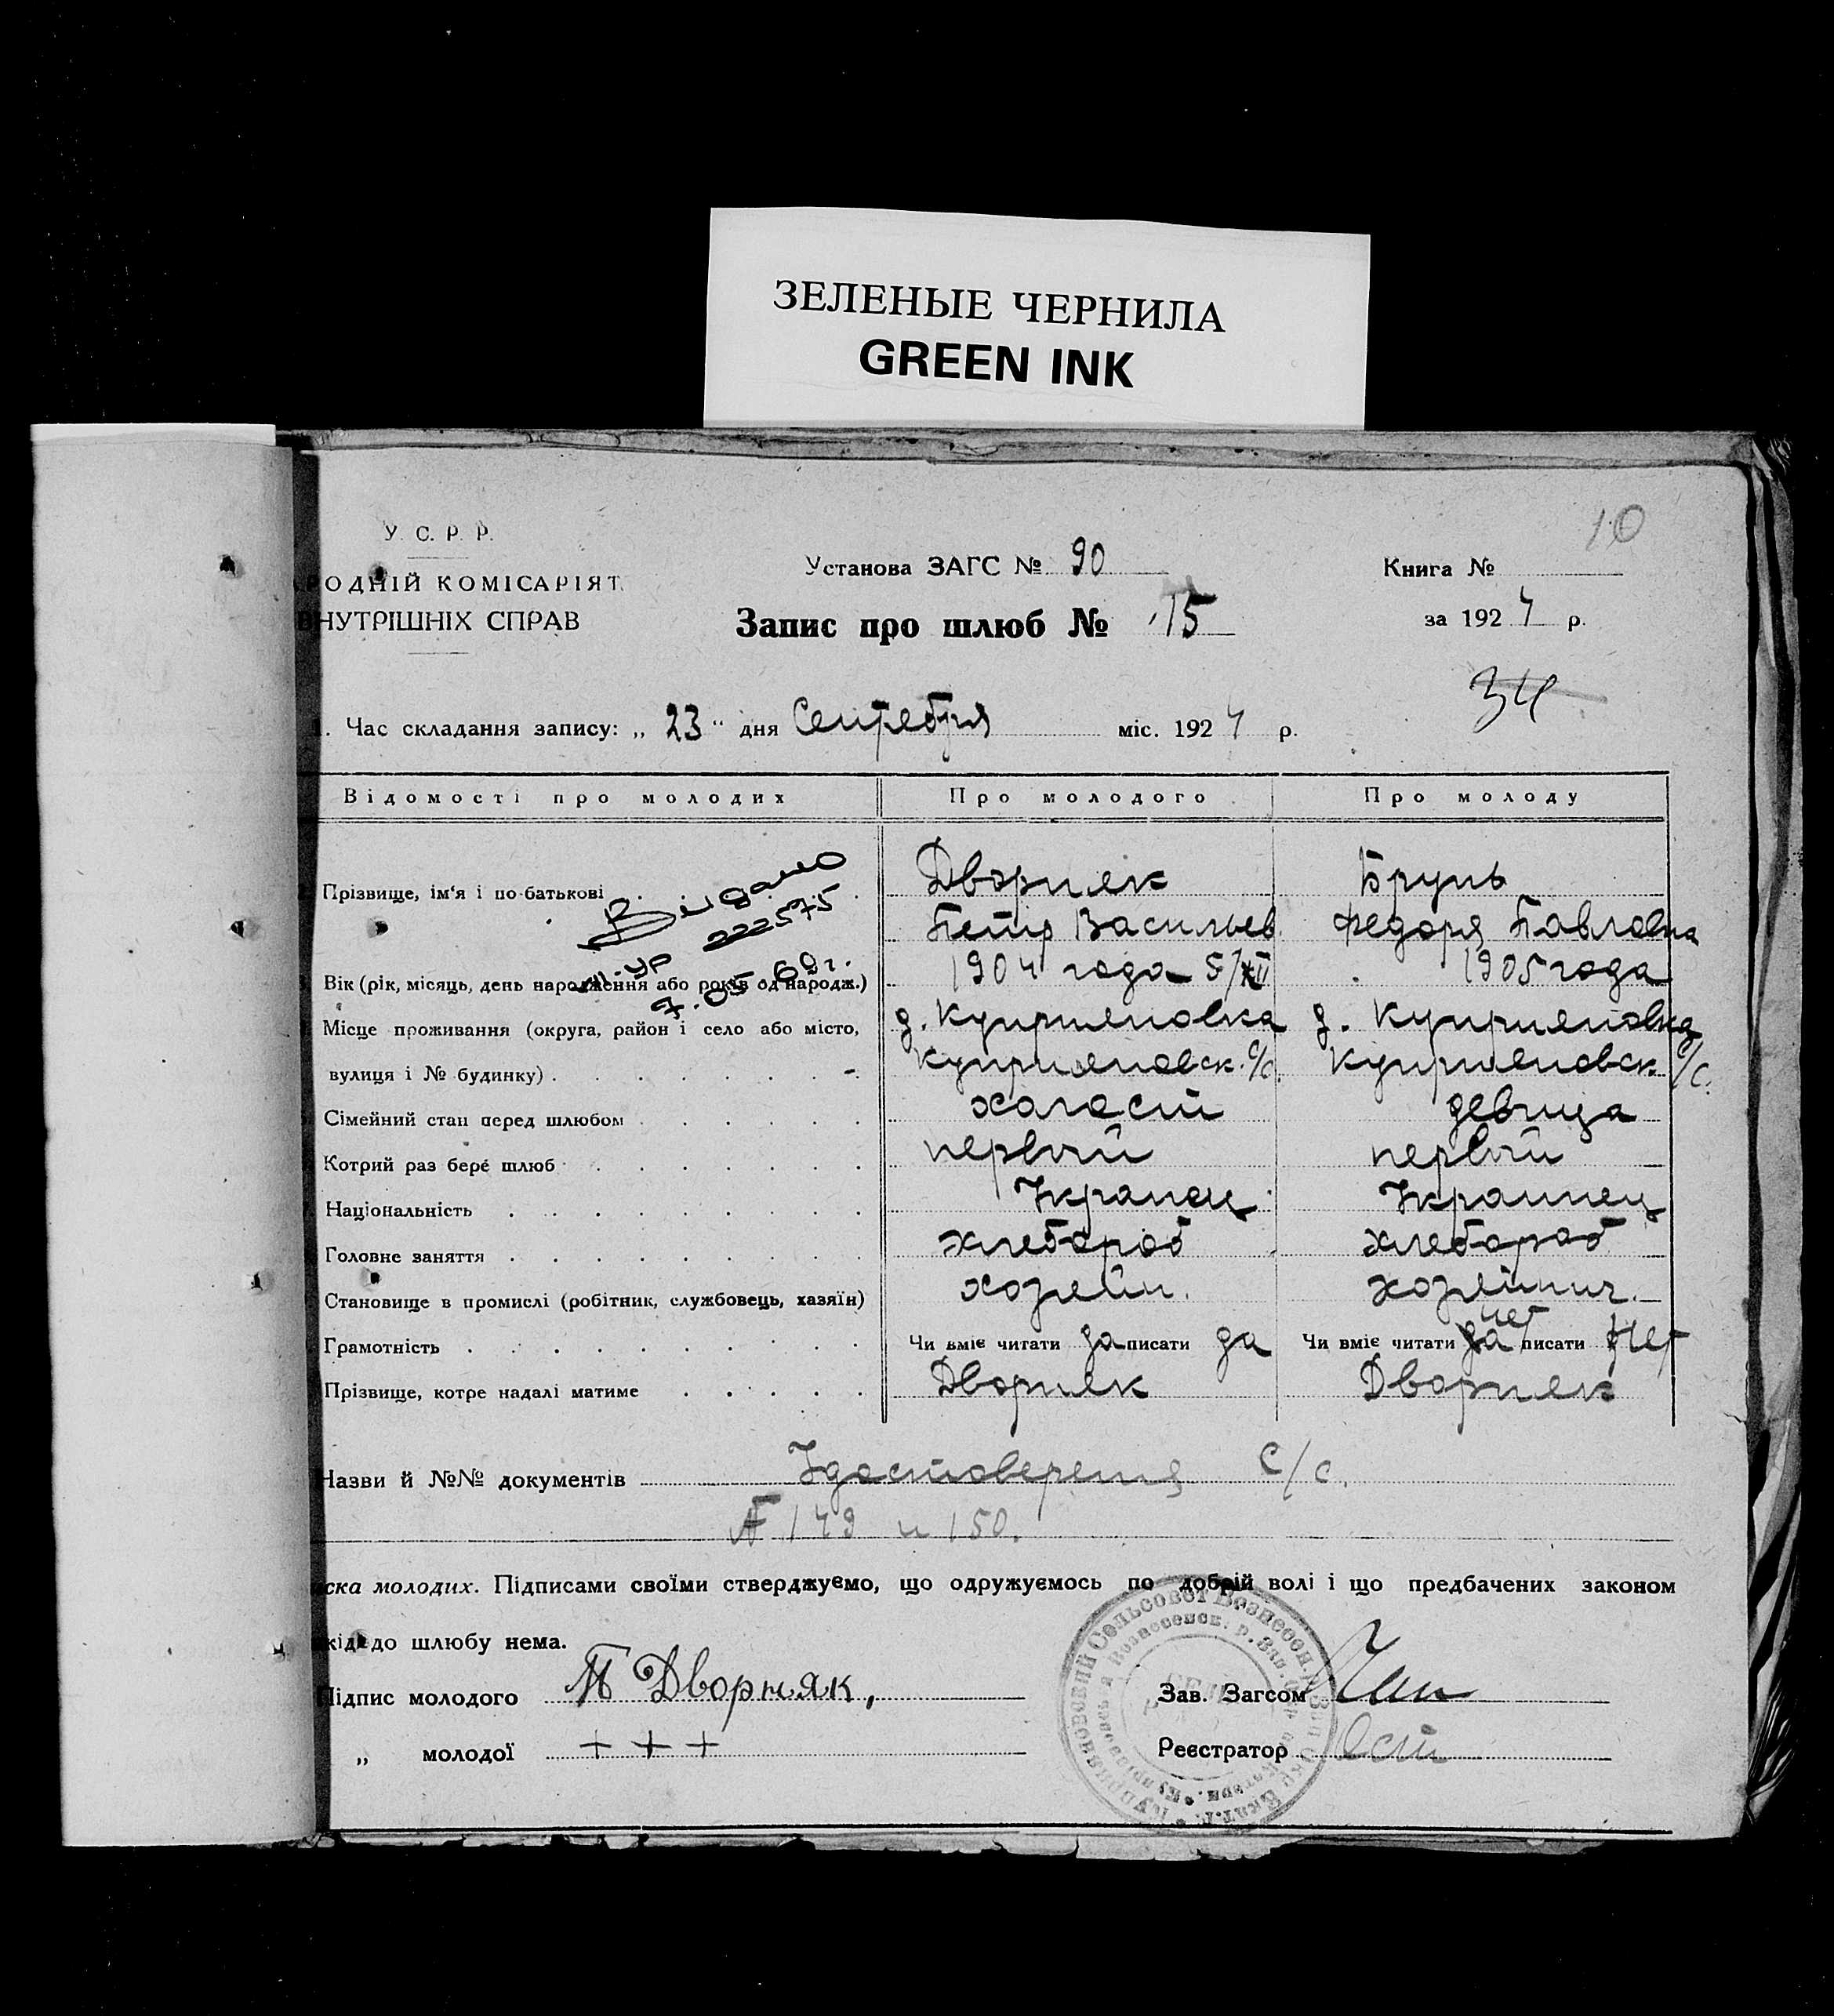 ЗЕЛЕНЫЕ ЧЕРНИЛА
GREEN INK
10
У. С. Р. Р.
РОДНІЙ КОМІСАРІЯТ
ВНУТРІШНІХ СПРАВ
Установа ЗАГС № 90
Книга №
Запис про шлюб № 15
за 1924 р.
34
1. Час складання запису: „ 23 “ дня Сентебря міс. 1924 р.
Відомості про молодих Про молодого Про молоду
Прізвище, ім‘я і по-батькові Дворняк Брунь
Петр Васильев. Федоря Павловна
Видано
222575
7.05.60 г.
Вік (рік, місяць, день народження або років од народж.) 1904 года 5/XII 1905 года
Місце проживання (округа, район і село або місто, д. Куприяновка д. Куприяновка
вулиця і № будинку) Куприяновск. С/с. Куприяновск С/с.
Сімейний стан перед шлюбом холост девица
Котрий раз бере шлюб первый первый
Національність Укранец Украинец
Головне заняття хлебороб хлебороб
Становище в промислі (робітник, службовець, хазяїн) хозяин. хозяйнич.
Грамотність Чи вміє читати да писати да Чи вміє читати да нет писати Нет
Прізвище, котре надалі матиме Дворняк Дворняк
Назви й №№ документів Удостоверения С/с.
№ 149 и 150.
ска молодих. Підписами своїми стверджуємо, що одружуємось по добрій волі і що предбачених законом
кід до шлюбу нема.
Підпис молодого П Дворняк,
Зав. Загсом
„ молодої + + +
Реєстратор